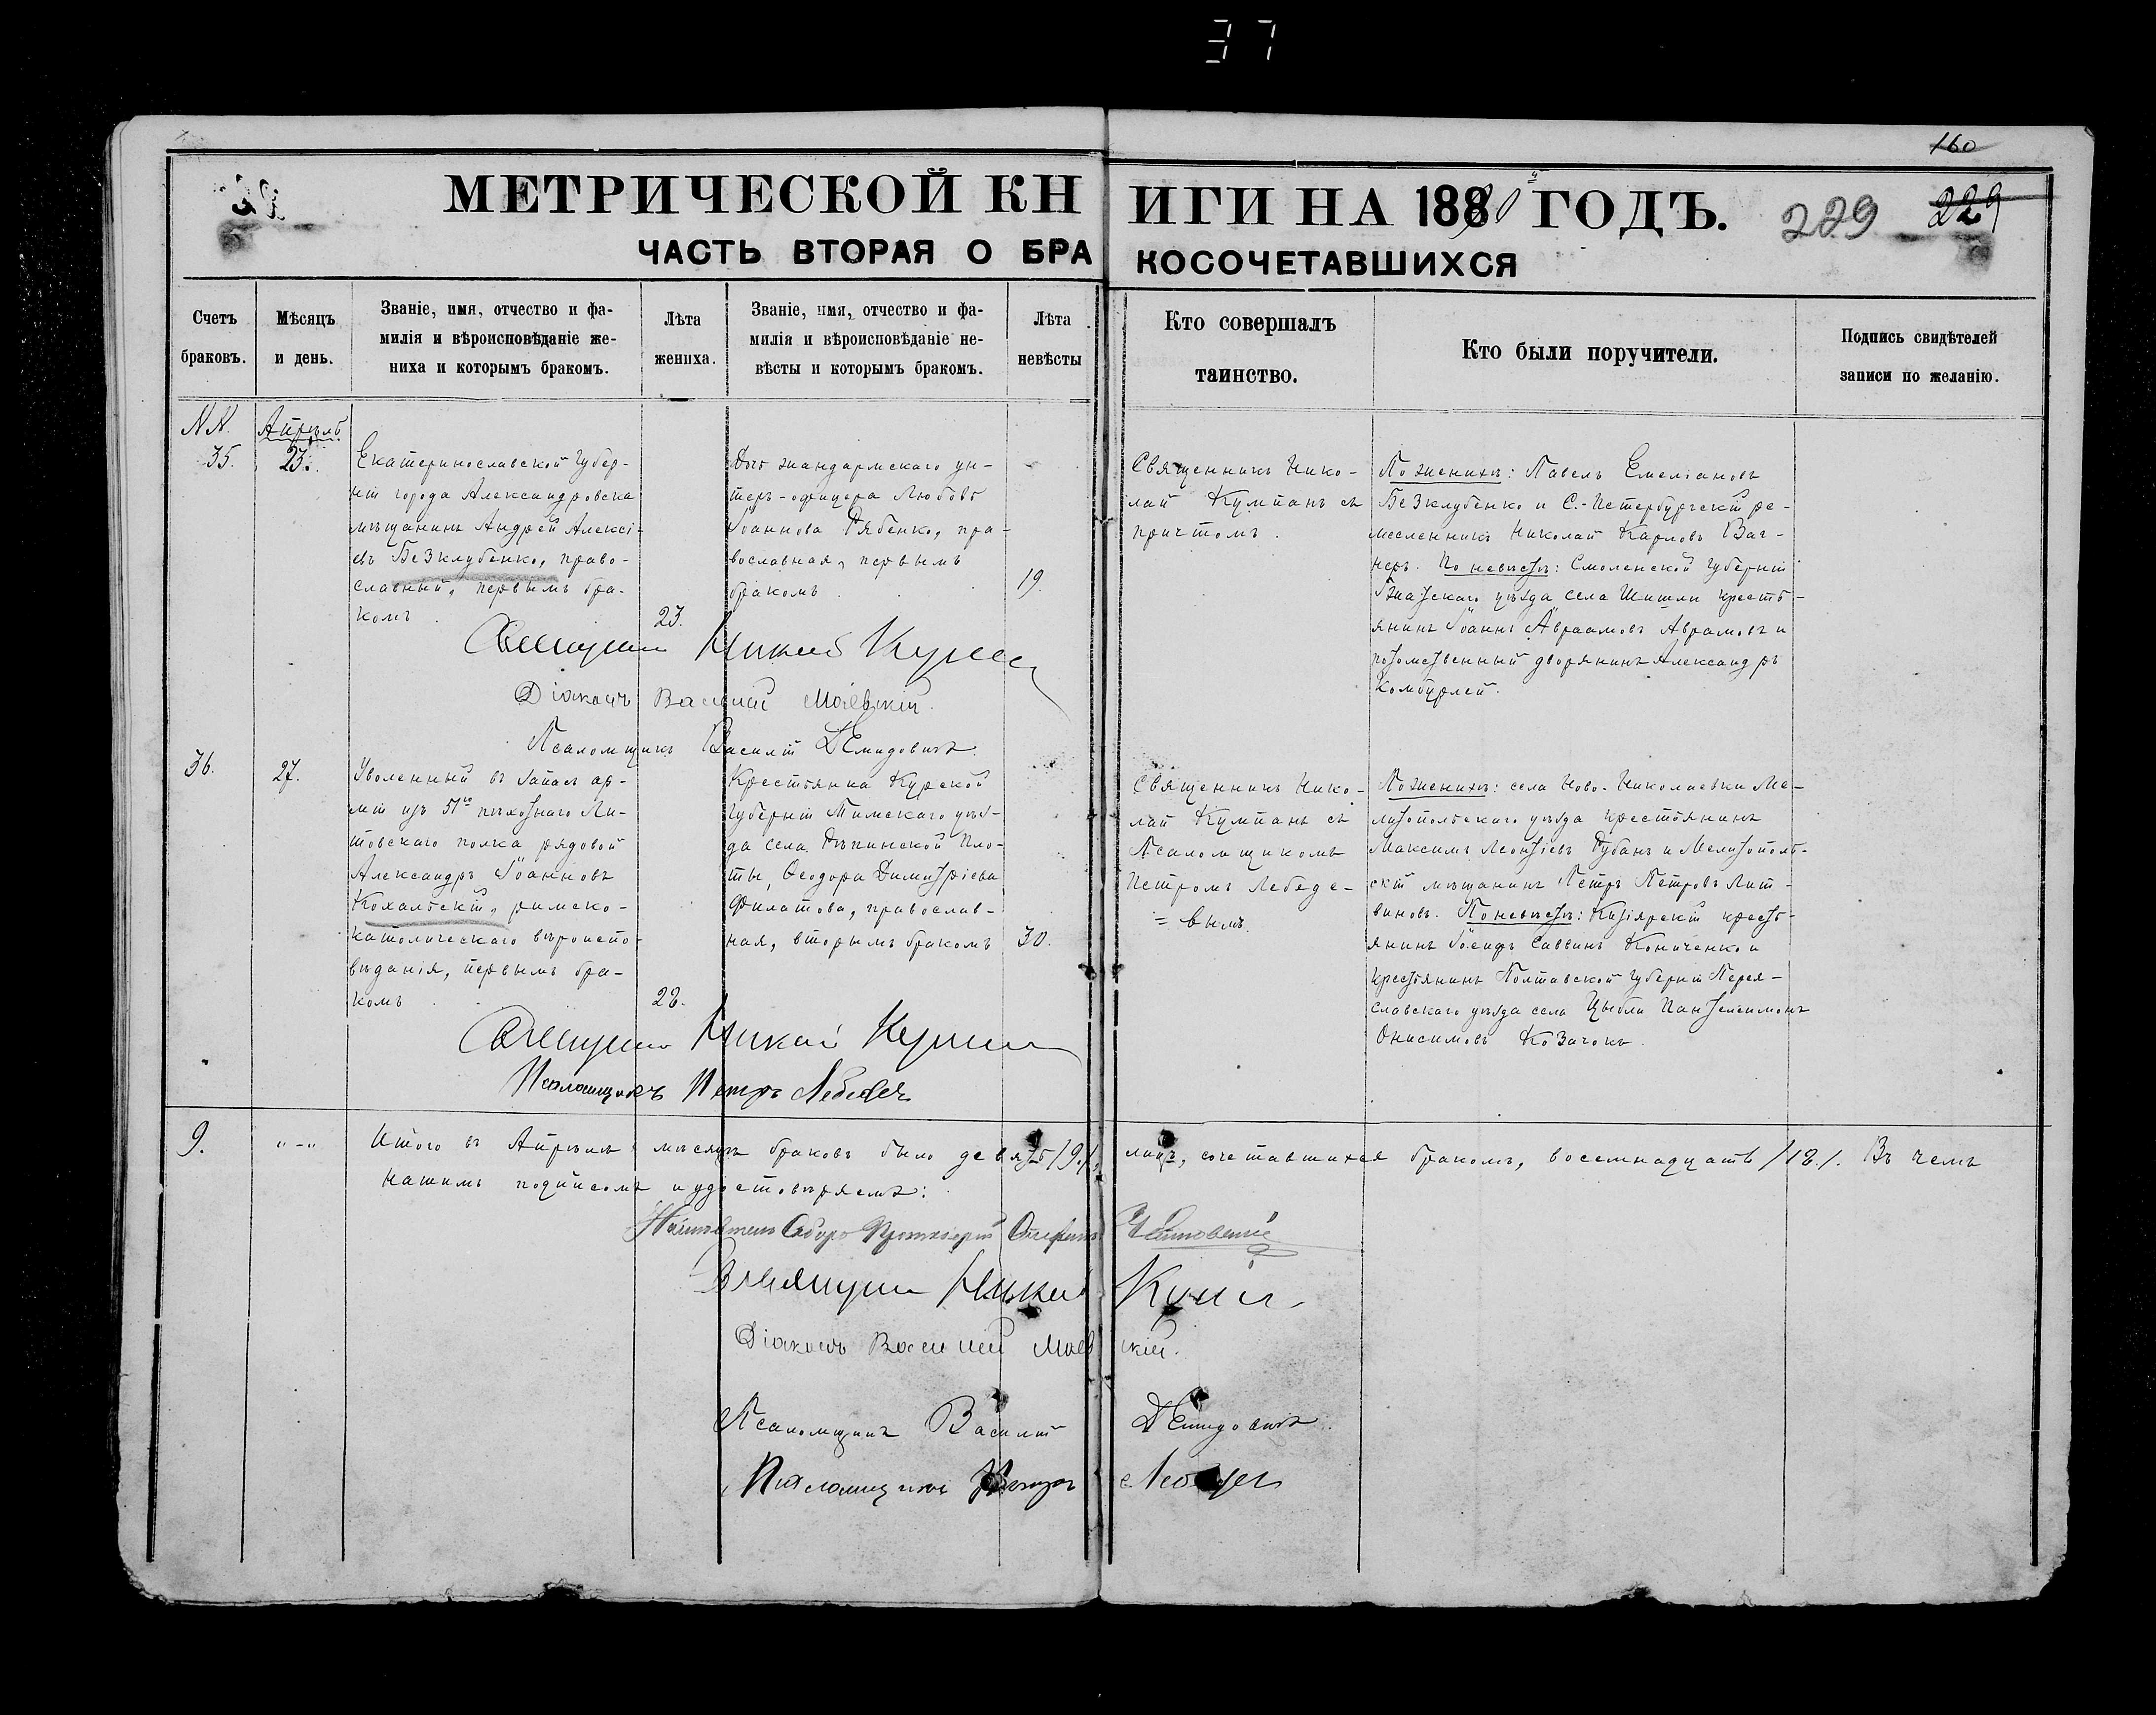 37
160
229
229
МЕТРИЧЕСКОЙ КНИГИ НА 1880 ГОДЪ.
ЧАСТЬ ВТОРАЯ О БРАКОСОЧЕТАВШИХСЯ
Счетъ
браковъ.
Мѣсяцъ
и день.
Званіе, имя, отчество и фа-
милія и вѣроисповѣданіе же-
ниха и которымъ бракомъ.
Лѣта
жениха.
Званіе, имя, отчество и фа-
милія и вѣроисповѣданіе не-
вѣсты и которымъ бракомъ.
Лѣта
невѣсты
Кто совершалъ
таинство.
Кто были поручители.
Подпись свидѣтелей
записи по желанію.
NN.
35.
Апрѣль
23.
Екатеринославской Губер-
ніи города Александровска
мѣщанинъ Андрей Алексі-
евъ Безклубенко, право-
славный, первымъ бра-
комъ.
23.
Дочь жандармскаго ун-
теръ-офицера Любовь
Іоаннова Рябенко, пра-
вославная, первымъ
бракомъ.
19.
Священникъ Нико-
лай Кумпанъ съ
причтомъ.
По женихѣ: Павелъ Емеліановъ
Безклубенко и С.-Петербургскій ре-
месленникъ Николай Карловъ Ваг-
неръ. По невѣстѣ: Смоленской Губерніи
Гжатскаго уѣзда села Шишли кресть-
янинъ Іоаннъ Авраамовъ Аврамовъ и
потомственный дворянинъ Александръ
Комбурлей.
Священникъ Николай Кумпан
Діаконъ Василій Маевскій.
Псаломщикъ Василій Демидовичъ
36.
27.
Уволенный въ запасъ ар-
міи изъ 51го пѣхотнаго Ли-
товскаго полка рядовой
Александръ Іоанновъ
Кохальскій, римско-
католическаго вѣроиспо-
вѣданія, первымъ бра-
комъ
28.
Крестьянка Курской
Губерніи Тимскаго уѣз-
да села Рѣпинской Пло-
ты, Ѳеодора Димитріева
Филатова, православ-
ная, вторымъ бракомъ
30.
Священникъ Нико-
лай Кумпанъ съ
Псаломщикомъ
Петромъ Лебеде-
=вымъ.
По женихѣ: села Ново-Николаевки Ме-
литопольскаго уѣзда крестьянинъ
Максимъ Леонтіевъ Губанъ и Мелитополь-
скій мѣщанинъ Петръ Петровъ Лит-
виновъ. По невѣстѣ: Кизіярскій кресть-
янинъ Іосифъ Саввинъ Кониченко и
крестьянинъ Полтавской Губерніи Перея-
славскаго уѣзда села Цыбли Пантелеимонъ
Онисимовъ Козачокъ.
Священникъ Николай Кумпан
Псаломщикъ Петръ Лебедевъ
9.
"-"
Итого въ Апрѣлѣ мѣсяцѣ браковъ было девять /9./, лицъ, сочетавшихся бракомъ, восемнадцать /18./. Въ чемъ
нашимъ подписомъ и удостовѣряемъ:
Настоятель Собора Протоіерей
Священникъ Николай Кумпан
Діаконъ Василій Маевскій.
Псаломщикъ Василій Демидовичъ.
Псаломщикъ Петръ Лебедев